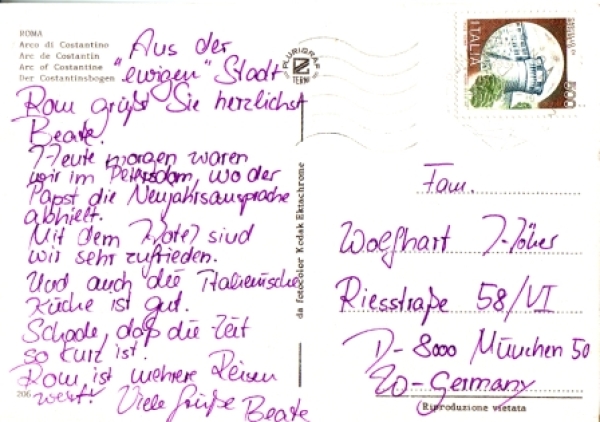 ROMA
Arco di Costantino
Arc de Constantin
Arc of Constantine
Der Constantinsbogen
Aus der
"ewigen" Stadt
Rom grüßt Sie herzlichst
Beate.
Heute morgen waren
wir im Petersdom, wo der
Papst die Neujahrsansprache
abhielt.
Mit dem Hotel sind
wir sehr zufrieden.
Und auch die Italienische
Küche ist gut.
Schade, daß die Zeit
so kurz ist.
Rom ist mehrere Reisen
wert! Viele Grüße Beate
206
PLURIGRAF
TERNI
da fotocolor Kodak Ektachrome
ITALIA
500
Fam.
Wolfhart
Riesstraße 58/VI
D-8000 München 50
Germany
(Riproduzione vietata